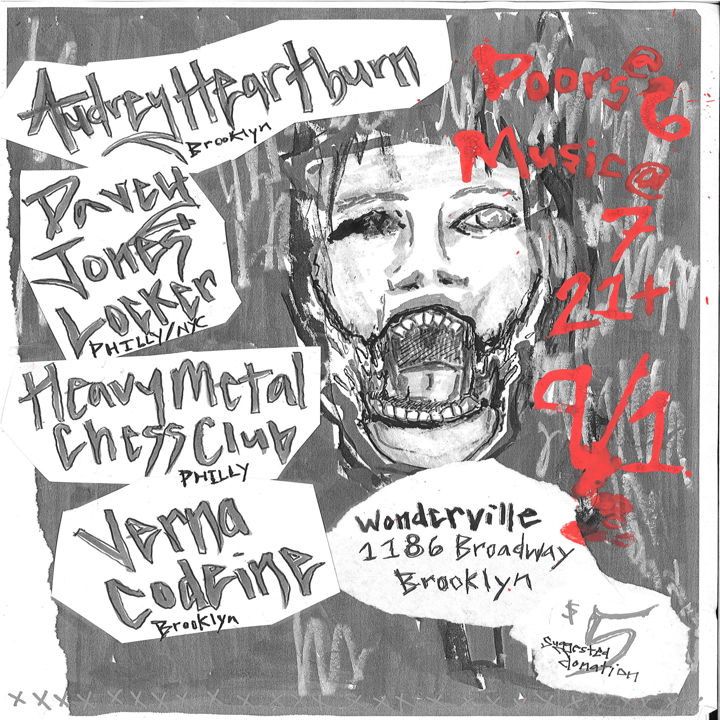 Audrey Heartburn
Brooklyn
Davey
Jones
Locker
PHILLY/NYC
Heavy Metal
Chess Club
PHILLY
Verna
Codeine
Brooklyn
Doors @
6
Music @
7
21+
9/1
Wonderville
1186 Broadway
Brooklyn
$5
suggested
donation
xxxxxxxxxxxxxxxxxxxxxxxxxxxxxx